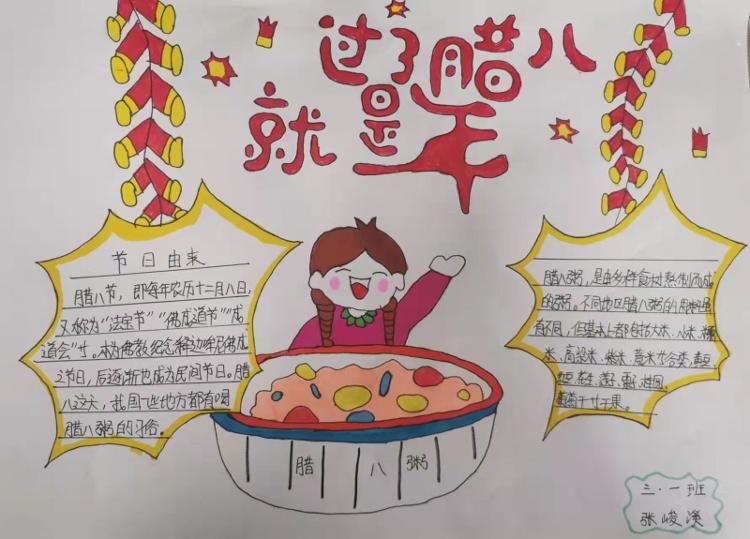 过了腊八
就是年
节日由来
腊八节，即每年农历十二月八日，
又称为“法宝节”“佛成道节”“成
道会”寸。本为佛教纪念释迦牟尼佛成
之节日，后逐渐也成为民间节日。腊
八这天，我国一些地方都有喝
腊八粥的习俗。
腊八粥，是由多样食材熬制而成
的粥。不同地区腊八粥的用料虽
有不同，但基本上都包括大米、小米、糯
米、高粱米、紫米、薏米
等干果。
腊八粥
三·一班
张峻溪